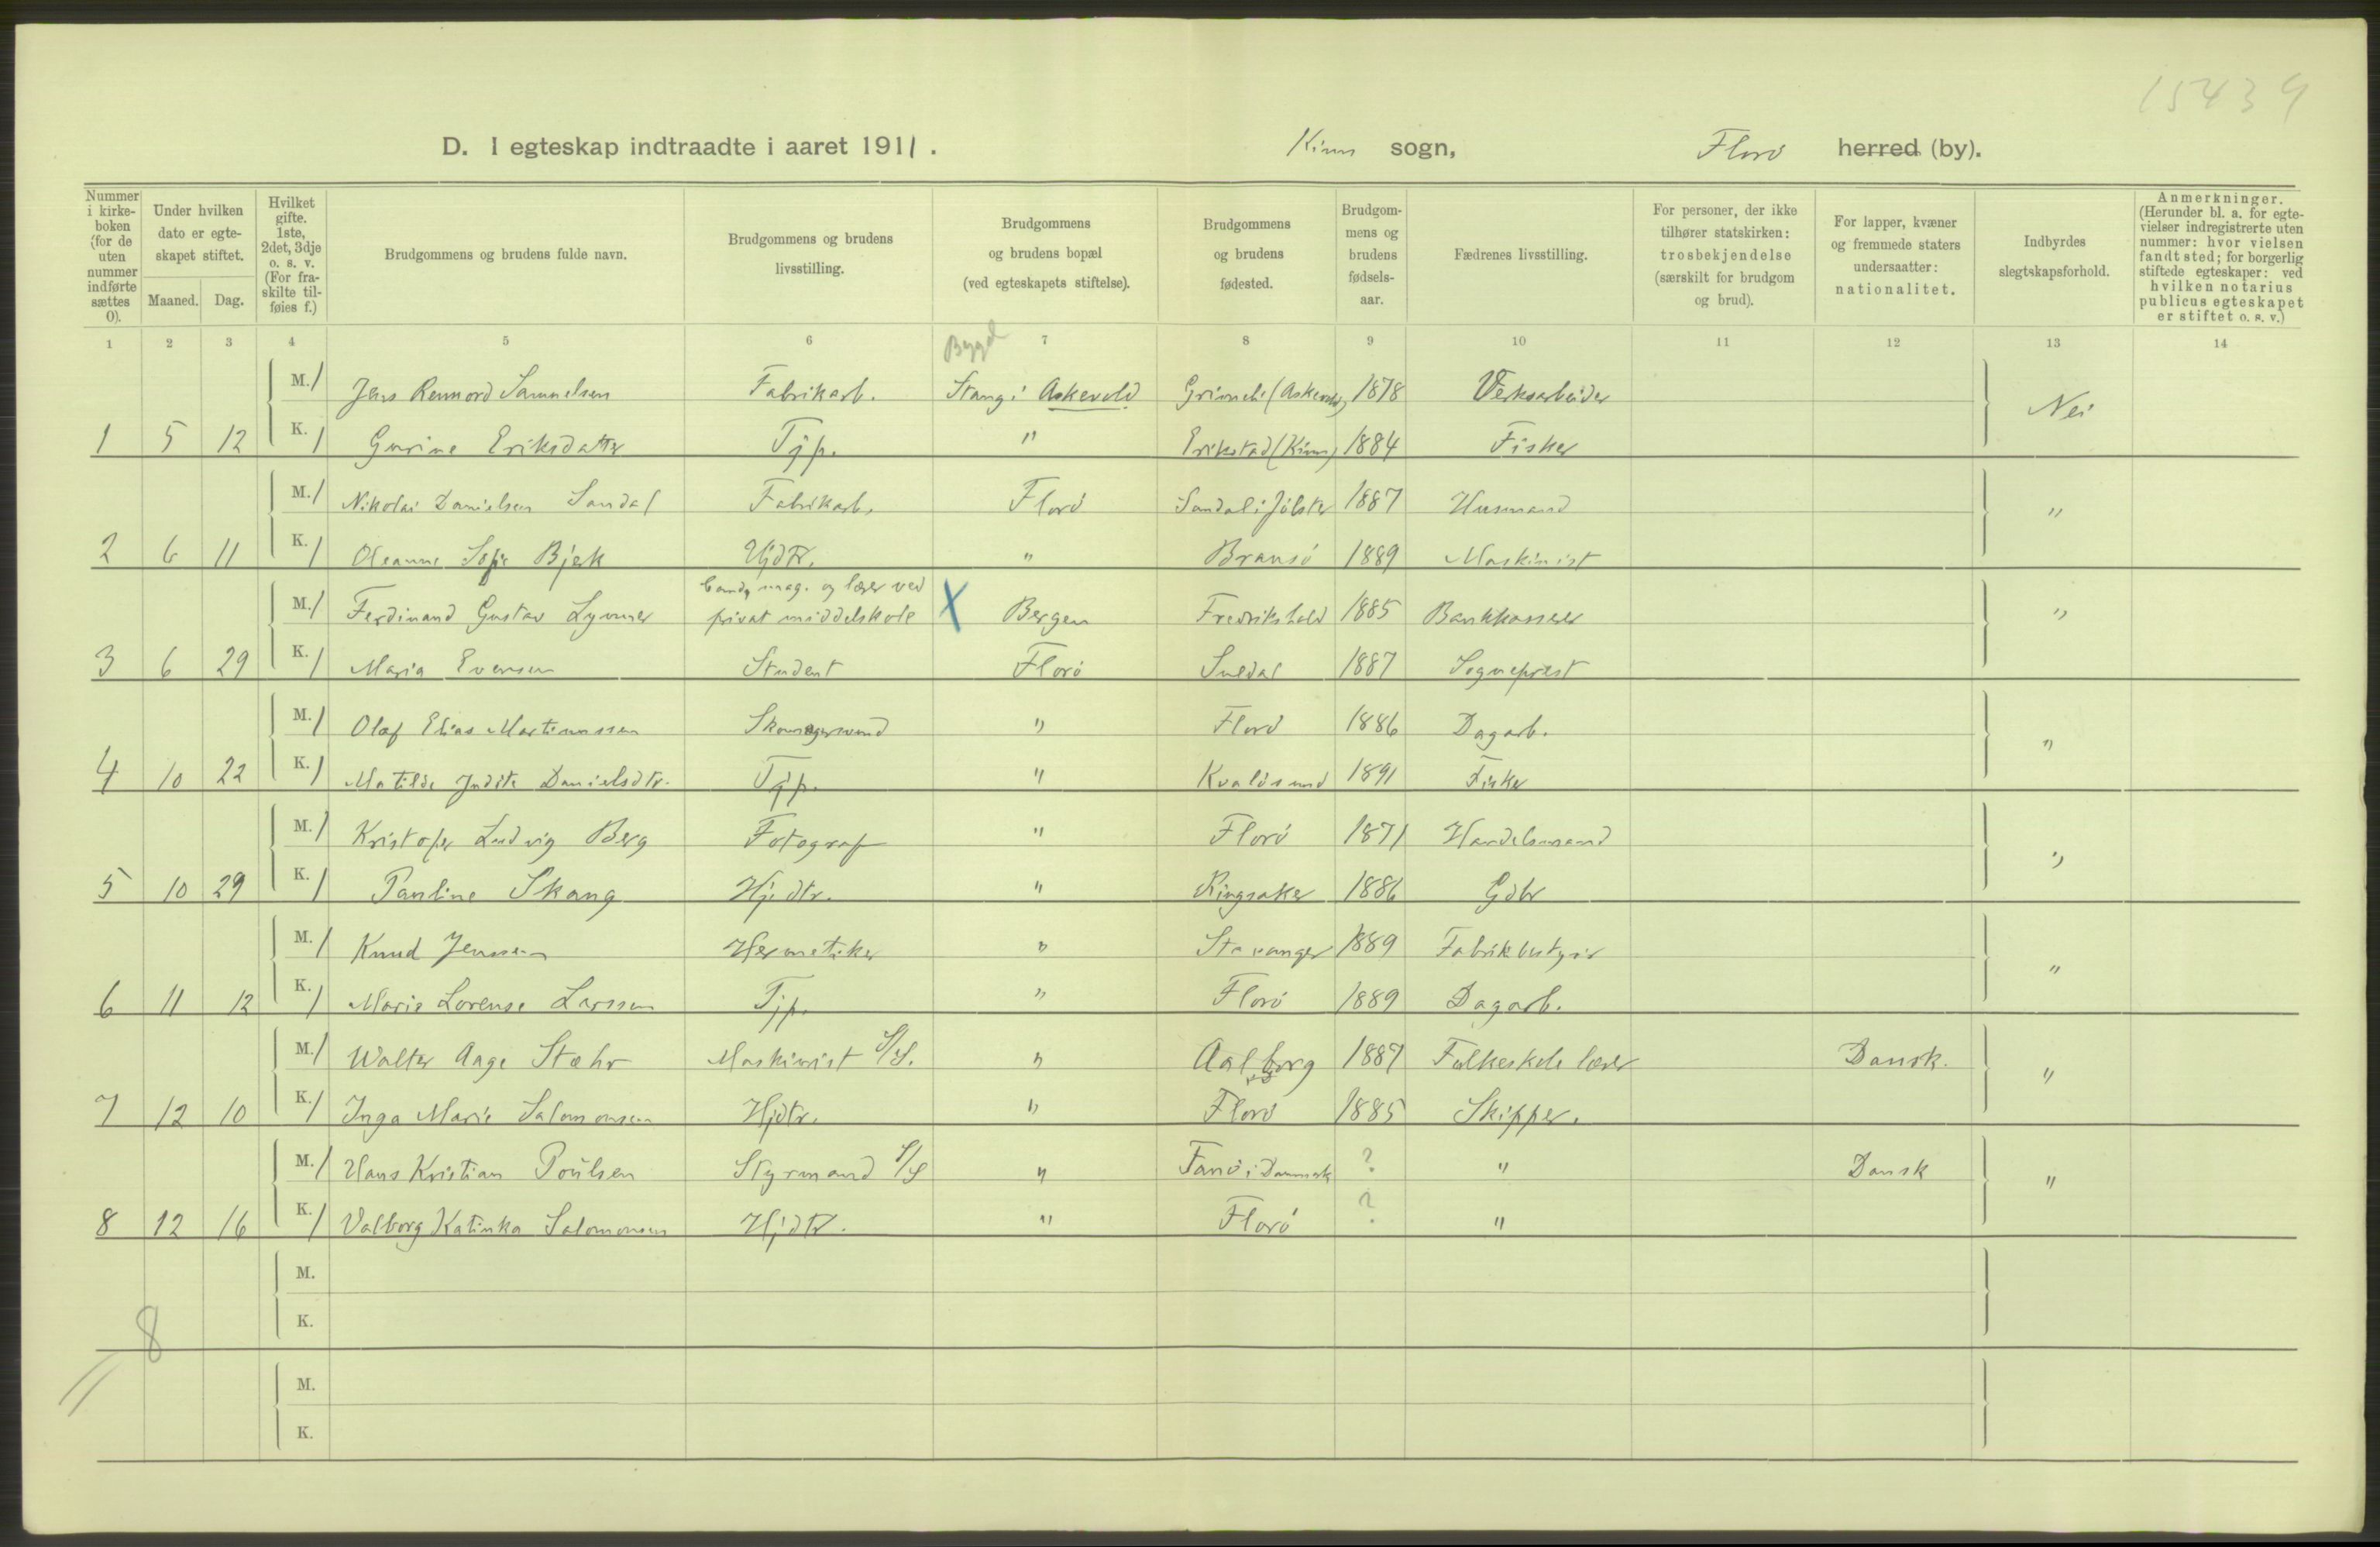 15439
D. I egteskap indtraadte i aaret 1911. Kinn sogn, Florö herred (by).
Nummer i kirkeboken (for de uten nummer indførte sættes 0). Under hvilken dato er egteskapet stiftet. Maaned. Dag. Hvilket gifte. 1ste, 2det, 3dje o. s. v. (For fraskilte tilføies f.) Brudgommens og brudens fulde navn. Brudgommens og brudens livsstilling. Brudgommens og brudens bopæl (ved egteskapets stiftelse). Brudgommens og brudens fødested. Brudgommens og brudens fødselsaar. Fædrenes livsstilling. For personer, der ikke tilhører statskirken: trosbekjendelse (særskilt for brudgom og brud). For lapper, kvæner og fremmede staters undersaatter: nationalitet. Indbyrdes slegtskapsforhold. Anmerkninger. (Herunder bl. a. for egtevielser indregistrerte uten nummer: hvor vielsen fandt sted; for borgerlig stiftede egteskaper: ved hvilken notarius publicus egteskapet er stiftet o. s. v.)
1 2 3 4 5 6 7 8 9 10 11 12 13 14
Bygd
M. 1 Jens Samuelsen Fabrikarb. Stang i Askevold (Askevold) 1878 Verksarbeider Nei
1 5 12 K. 1 Gurine Eriksdatter Tjp. " Erikstad (Kinn) 1884 Fisker
M. 1 Nikolai Danielsen Sandal Fabrikarb. Florö Sandal i Jölster 1887 Husmand "
2 6 11 K. 1 Oleanne Sofie Bjerk Hjdtr. " Bransö 1889 Maskinist
Cand. mag. og lærer ved
M. 1 Ferdinand Gustav Lynner privat middelskole X Bergen Fredrikshald 1885 Bankkasserer "
3 6 29 K. 1 Maria Evensen Student Florö Suldal 1887 Sogneprest
M. 1 Olaf Elias Martinussen Skomagersvend " Florö 1886 Dagarb. "
4 10 22 K. 1 Matilde Judite Danielsdtr. Tjp. " Kvalösund 1891 Fisker
M. 1 Kristofer Ludvig Berg Fotograf " Florö 1871 Handelsmand "
5 10 29 K. 1 Pauline Skang Hjdtr. " Ringsaker 1886 Gdbr
M. 1 Knud Jenssen Hermetiker " Stavanger 1889 Fabrikbestyrer "
6 11 12 K. 1 Marie Lorense Larssen Tjp. " Florö 1889 Dagarb.
M. 1 Walter Aage Stæhr Maskinist S/S. " Aalborg 1887 Folkeskole lærer Dansk. "
7 12 10 K. 1 Inga Marie Salomonsen Hjdtr. " Florö 1885 Skipper.
M. 1 Hans Kristian Poulsen Styrmand S/S " Fanö i Danmark ? " Dansk "
8 12 16 K. 1 Valborg Katinka Salomonsen Hjdtr. " Florö ? "
M.
K.
8
M.
K.